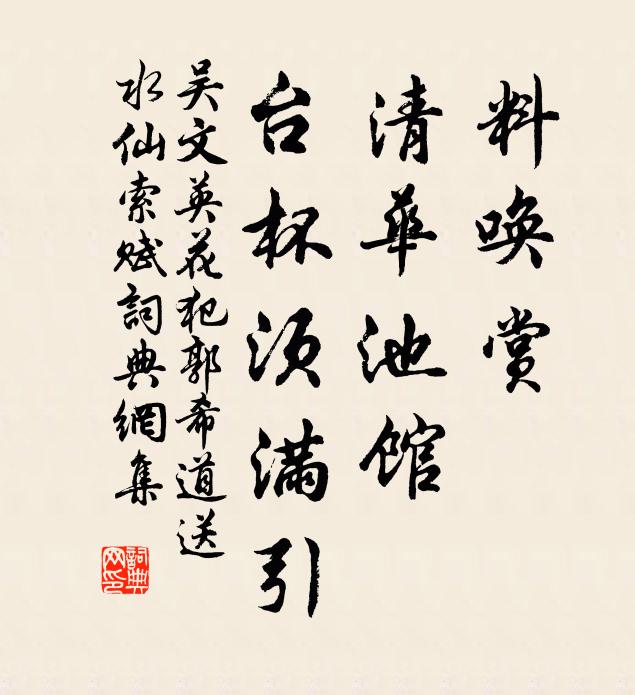 料唤赏
清華池馆
台杯须满引
吴文英花犯郭希道送
水仙索赋詞典網集
詞典
网印